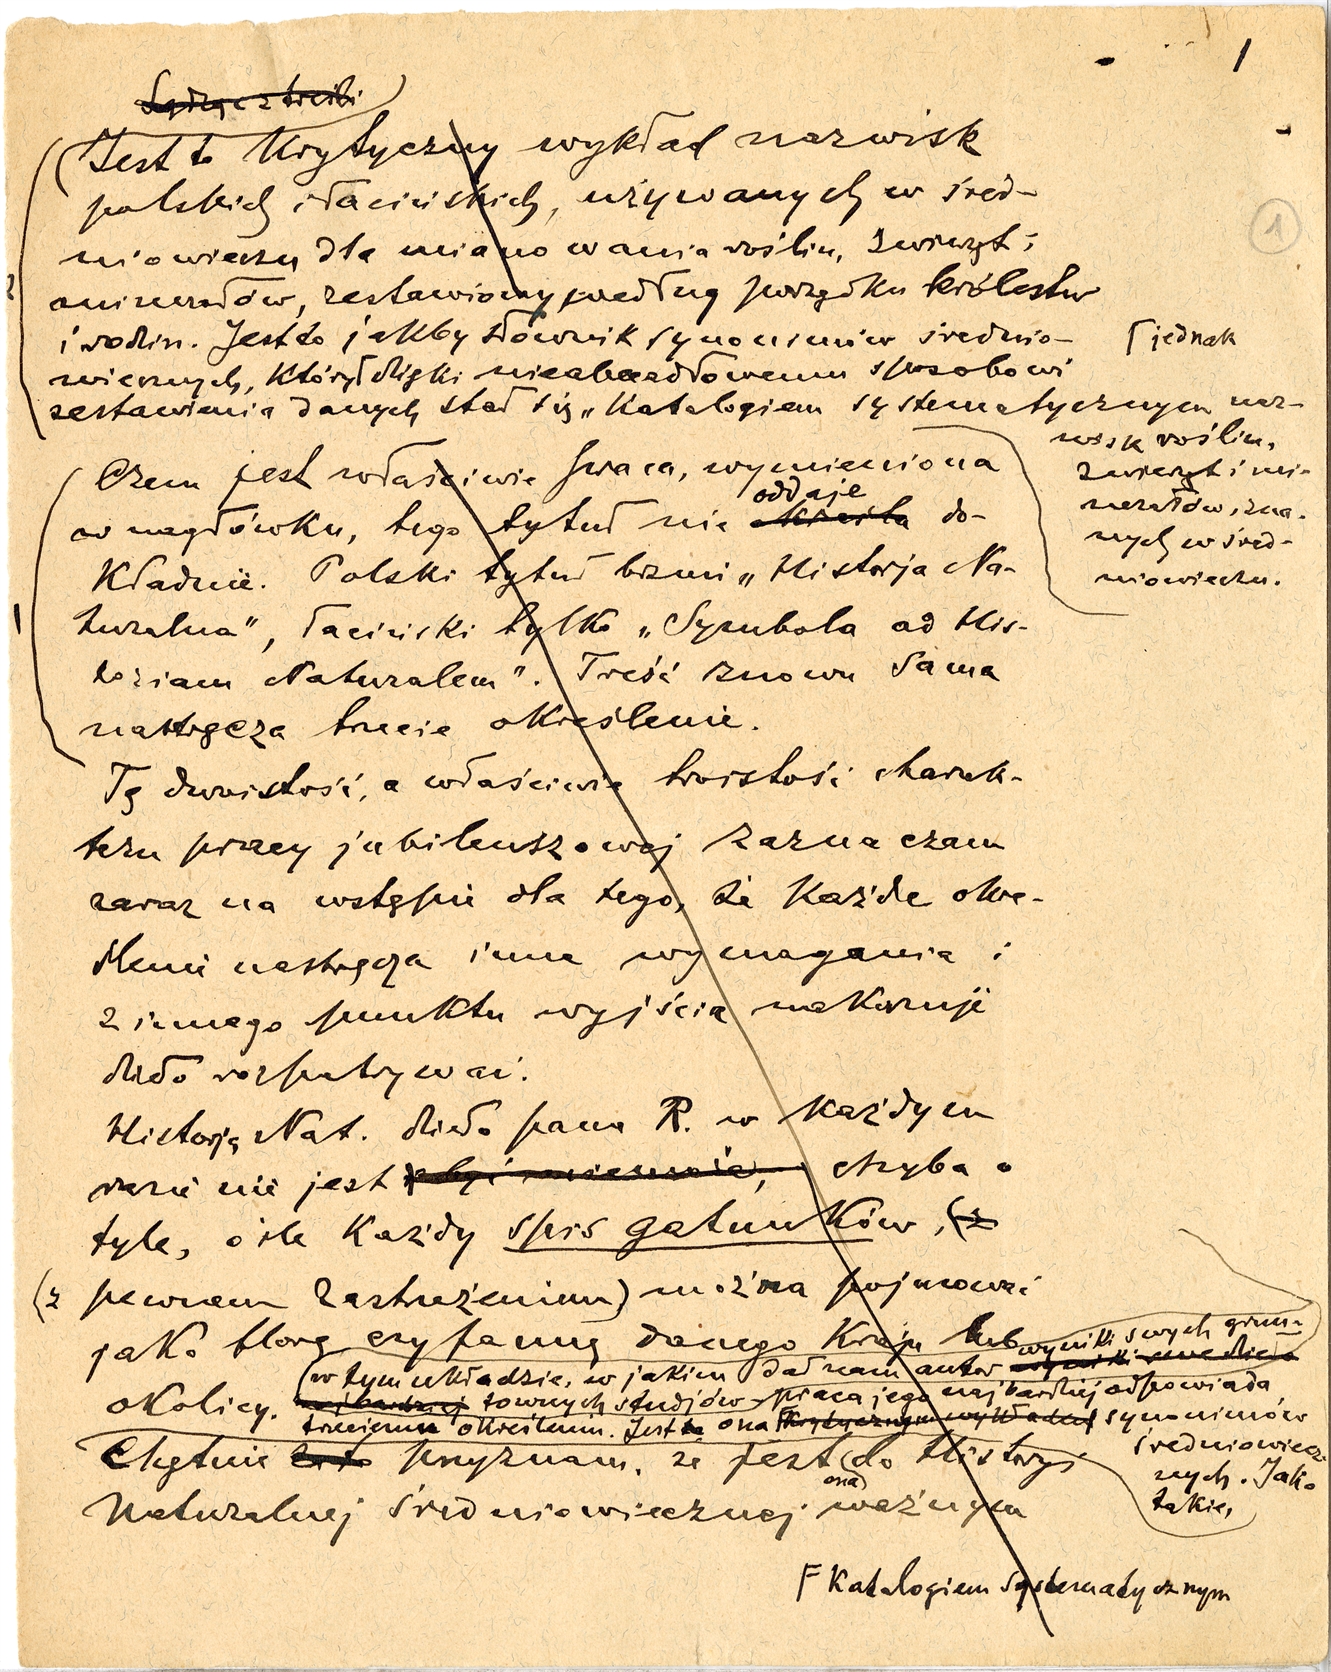 1
1
Sądząc z treści
Jest to krytyczny wykład nazwisk
polskich i łacińskich, używanych w śred-
niowieczu dla mianowania roślin, zwierząt i
minerałów, zestawiony według porządku królestw
i rodzin. Jest to jakby słownik synonimów średnio-
wiecznych, który dzięki nieabecadłowemu sposobowi
⌈ jednak
zestawienia danych stał się „Katalogiem systematycznym naz-
wisk roślin,
zwierząt i mi-
nerałów, zna-
nych w śred-
niowieczu.
2
1
Czem jest właściwie praca, wymieniona
oddaje
w nagłówku, tego tytuł nie określa do-
kładnie. Polski tytuł brzmi „Historja Na-
turalna”, łaciński tylko „Symbola ad His-
toriam Naturalem”. Treść znowu sama
nastręcza trzecie określenie.
Tę dwoistość, a właściwie troistość charak-
teru pracy jubileuszowej zaznaczam
zaraz na wstępie dla tego, że każde okre-
ślenie nastręcza inne wymagania i
z innego punktu wyjścia nakazuje
dzieło rozpatrywać.
Historją Nat. dzieło pana R. w każdym
razie nie jest chyba o
tyle, o ile każdy spis gatunków, (z
(z pewnem zastrzeżeniem) można pojmować
jako florę czy faunę danego kraju lub
wyniki swych grun-
(w tym układzie, w jakim dał nam autor wyniki swe dzieło
okolicy. najbardziej townych studjów praca jego najbardziej odpowiada
trzeciemu określeniu. Jest to ona krytycznym wykładem synonimów
średniowiecz
nych. Jako
takie,
Chętnie przyznam, że jest (do Historyi
ona
Naturalnej średniowiecznej ważnym
F Katalogiem systematycznym